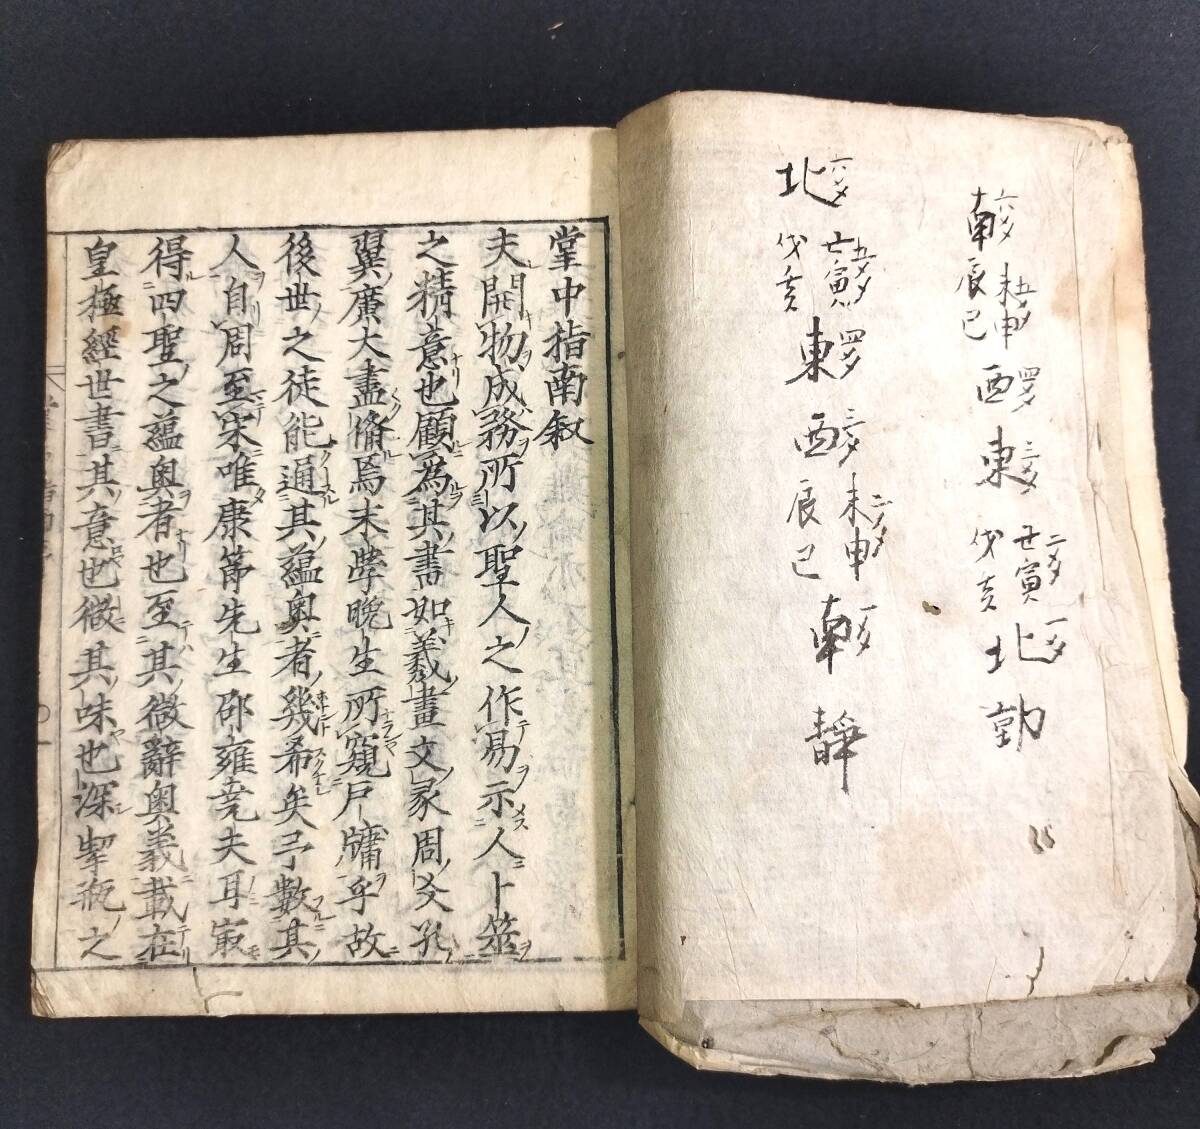 南 辰巳 未申 西 東 丑寅 戌亥 北 動
北 戌亥 丑寅 東 西 辰巳 未申 南 靜
堂中指南叙
夫開物成務所以聖人之作易示人卜筮
之精意也顧為其書如羲畫文彖周爻孔
翼廣大盡備焉末學晚生所窺戶牖乎故
後世之徒能通其蘊奧者幾希矣予數其
人自周至宋唯康節先生邵雍堯夫耳㝡
得四聖之蘊奧者也至其微辭奧義載在
皇極經世書其意也微其味也深挈瓶之